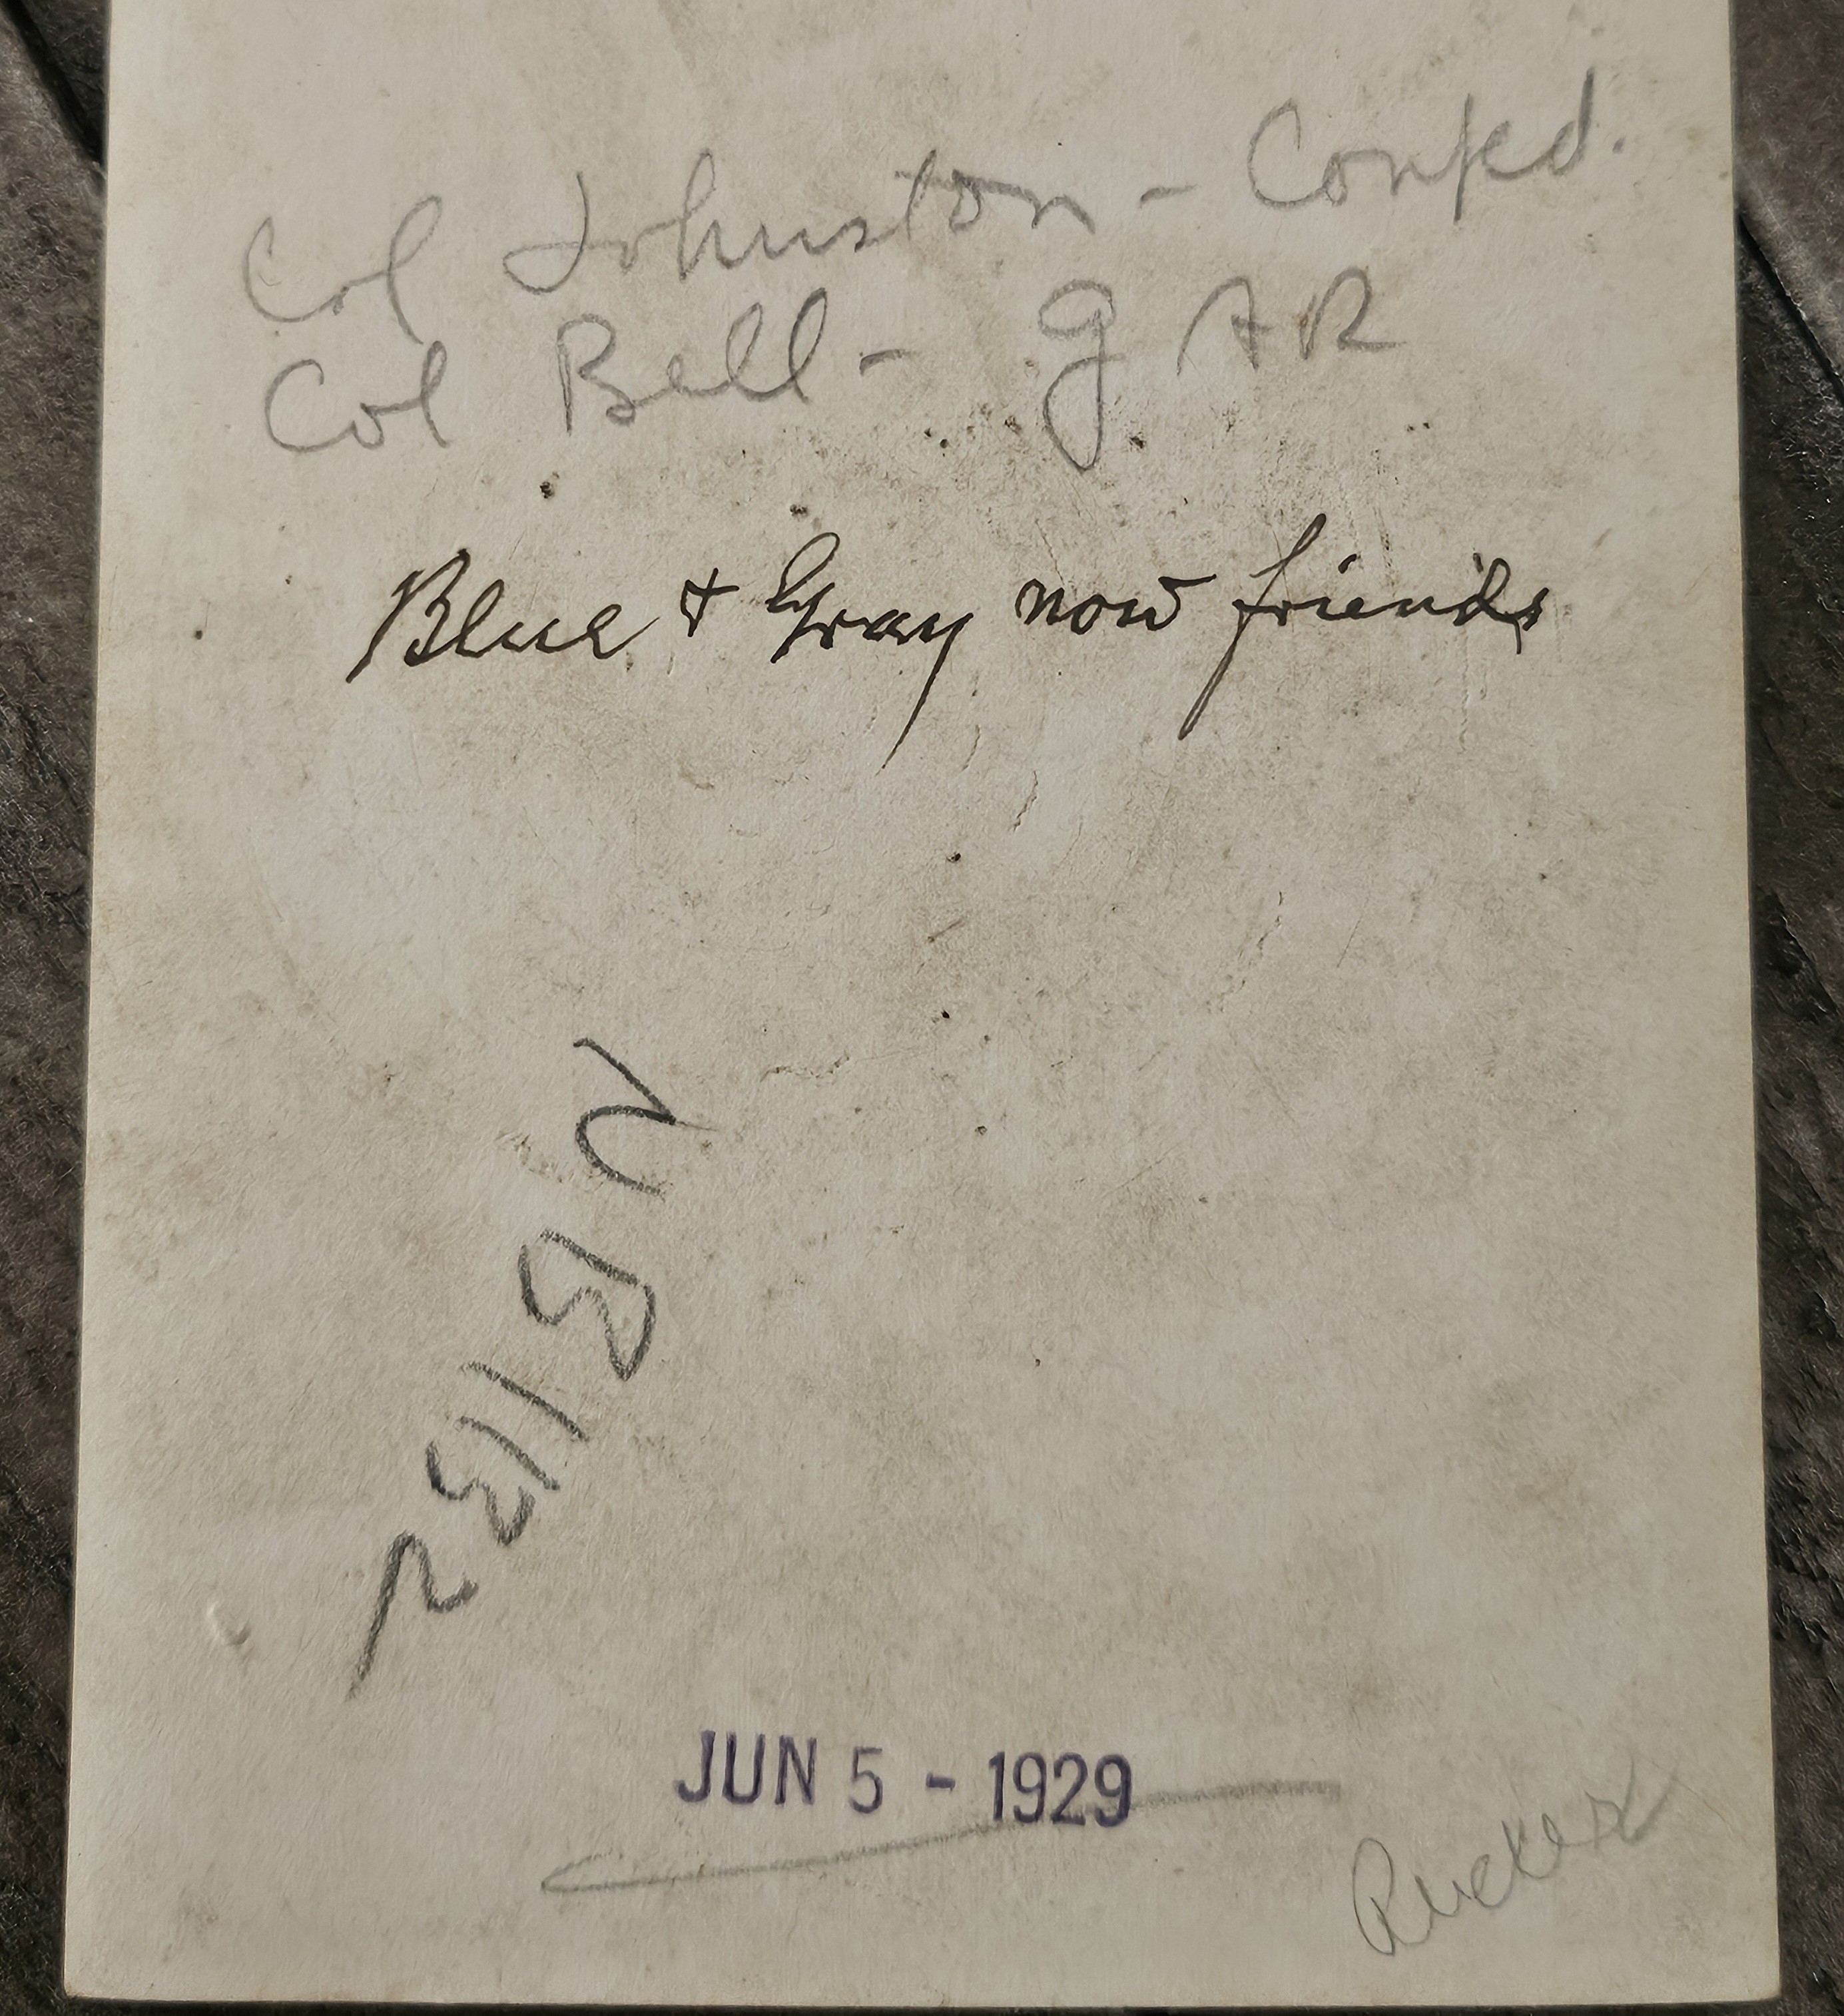 Col Johnston - Confed.
Col Bell - G A R
Blue + Gray now friends
JUN 5 - 1929